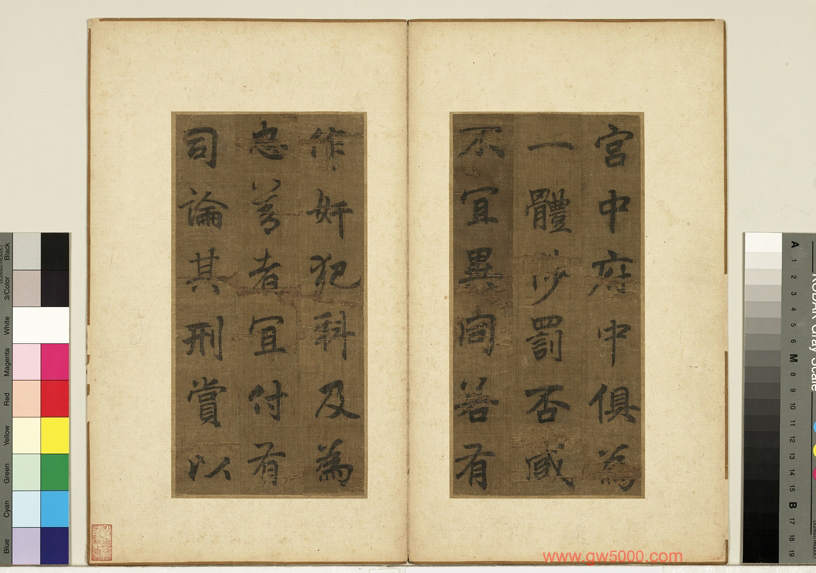 宮中府中俱為
一體陟罰否臧
不宜異同若有
作奸犯科及為
忠善者宜付有
司論其刑賞以
www.gw5000.com
Black
3/Color
White
Magenta
Red
Yellow
Green
Cyan
Blue
A
1
2
3
4
5
6
M
8
9
10
11
12
13
14
15
B
17
18
19